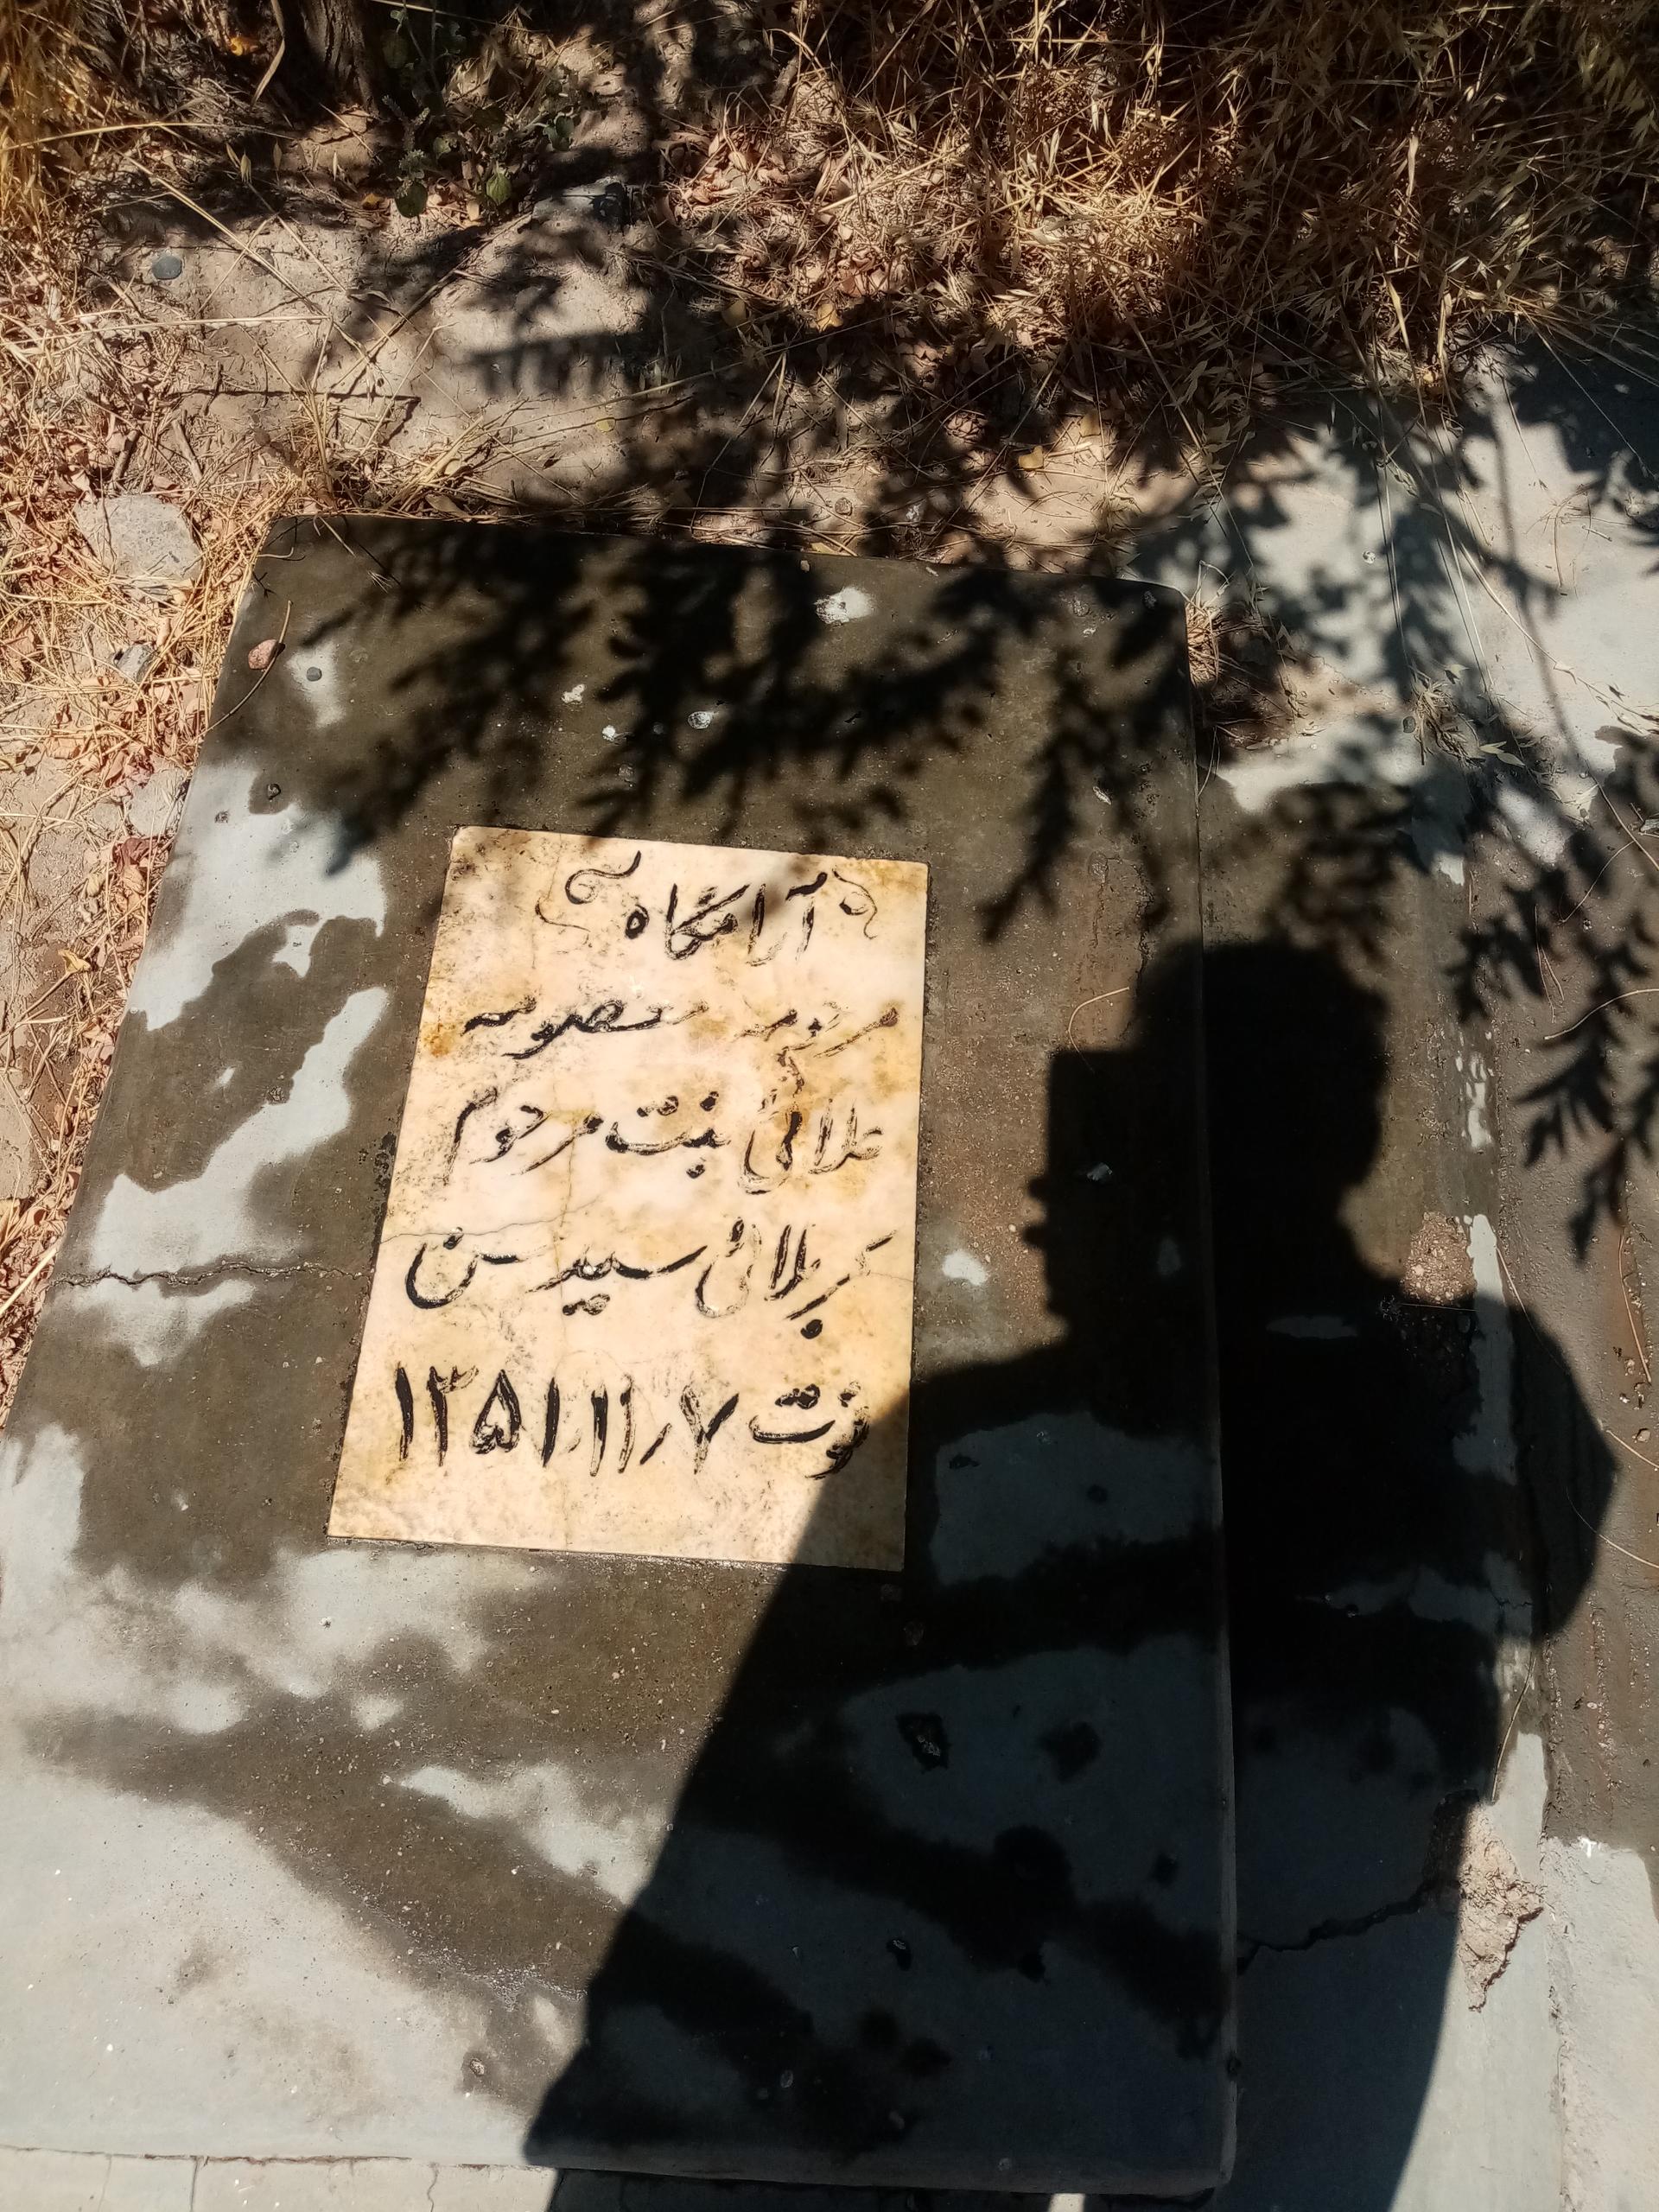 آرامگاه
مرحومه معصومه
علائی بنت مرحوم
کربلائی سید حسن
فوت ۱۳۵۱٫۱۱٫۷